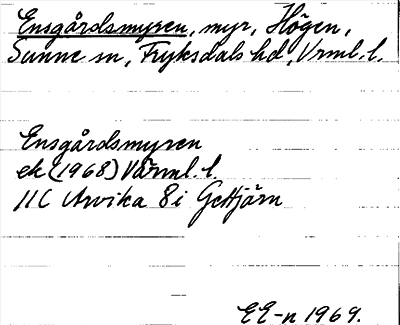 Ensgårdsmyren, myr, Högen,
Sunne sn, Fryksdals hd, Vrml. l.
Ensgårdsmyren
ek (1968) Värml. l.
11C Arvika 8i Gettjärn
EE-n 1969.